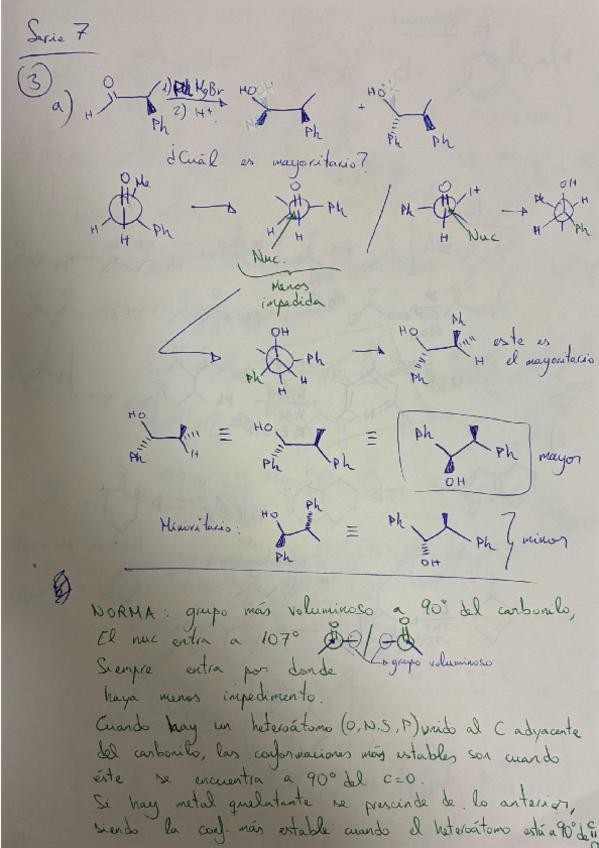 Serie 7
3
a)
O
H
Ph
1) PhMgBr
2) H+
HO
Ph
+
HO
Ph
Ph
¿Cuál es mayoritario?
O
Me
H
H
Ph
O
Ph
H
H
Nuc.
O
H
Ph
H
Nuc
OH
Ph
H
H
Ph
Menos
impedida
OH
Ph
Ph
H
H
HO
Ph
Ph
H
este es
el mayoritario
HO
Ph
H
≡
HO
Ph
Ph
≡
Ph
Ph
OH
mayor
Minoritario:
HO
Ph
Ph
≡
Ph
Ph
OH
minor
b
NORMA: grupo más voluminoso a 90° del carbonilo,
El nuc entra a 107°
O
/
O
grupo voluminoso
Siempre entra por donde
haya menos impedimento.
Cuando hay un heteroátomo (O,N,S,P) unido al C adyacente
del carbonilo, las conformaciones más estables son cuando
éste se encuentra a 90° del C=O.
Si hay metal quelatante se prescinde de lo anterior,
siendo la conf. más estable cuando el heteroátomo está a 90° de